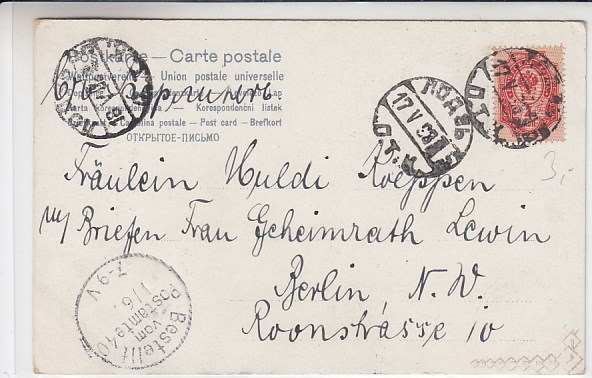 Postkarte — Carte postale
Weltpostverein — Union postale universelle
Carta korespondencia — Korespondenční lístek
Cartolina postale — Post card — Brefkort
ОТКРЫТОЕ-ПИСЬМО
ЛОДЗЬ
17 V
П.Т.К.
3,-
Fräulein Huldi Koeppen
Briefen Frau Geheimrath Lewin
Berlin, N.W.
Roonstrasse 10
Bestellt
vom
Postamte 40
1/6.
7-9 V